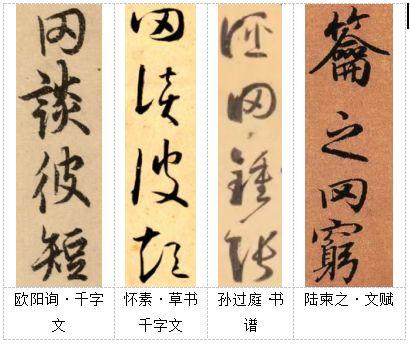 罔談彼短
罔談彼短
罔鍾張
籥之罔窮
欧阳询·千字文
怀素·草书千字文
孙过庭·书谱
陆柬之·文赋